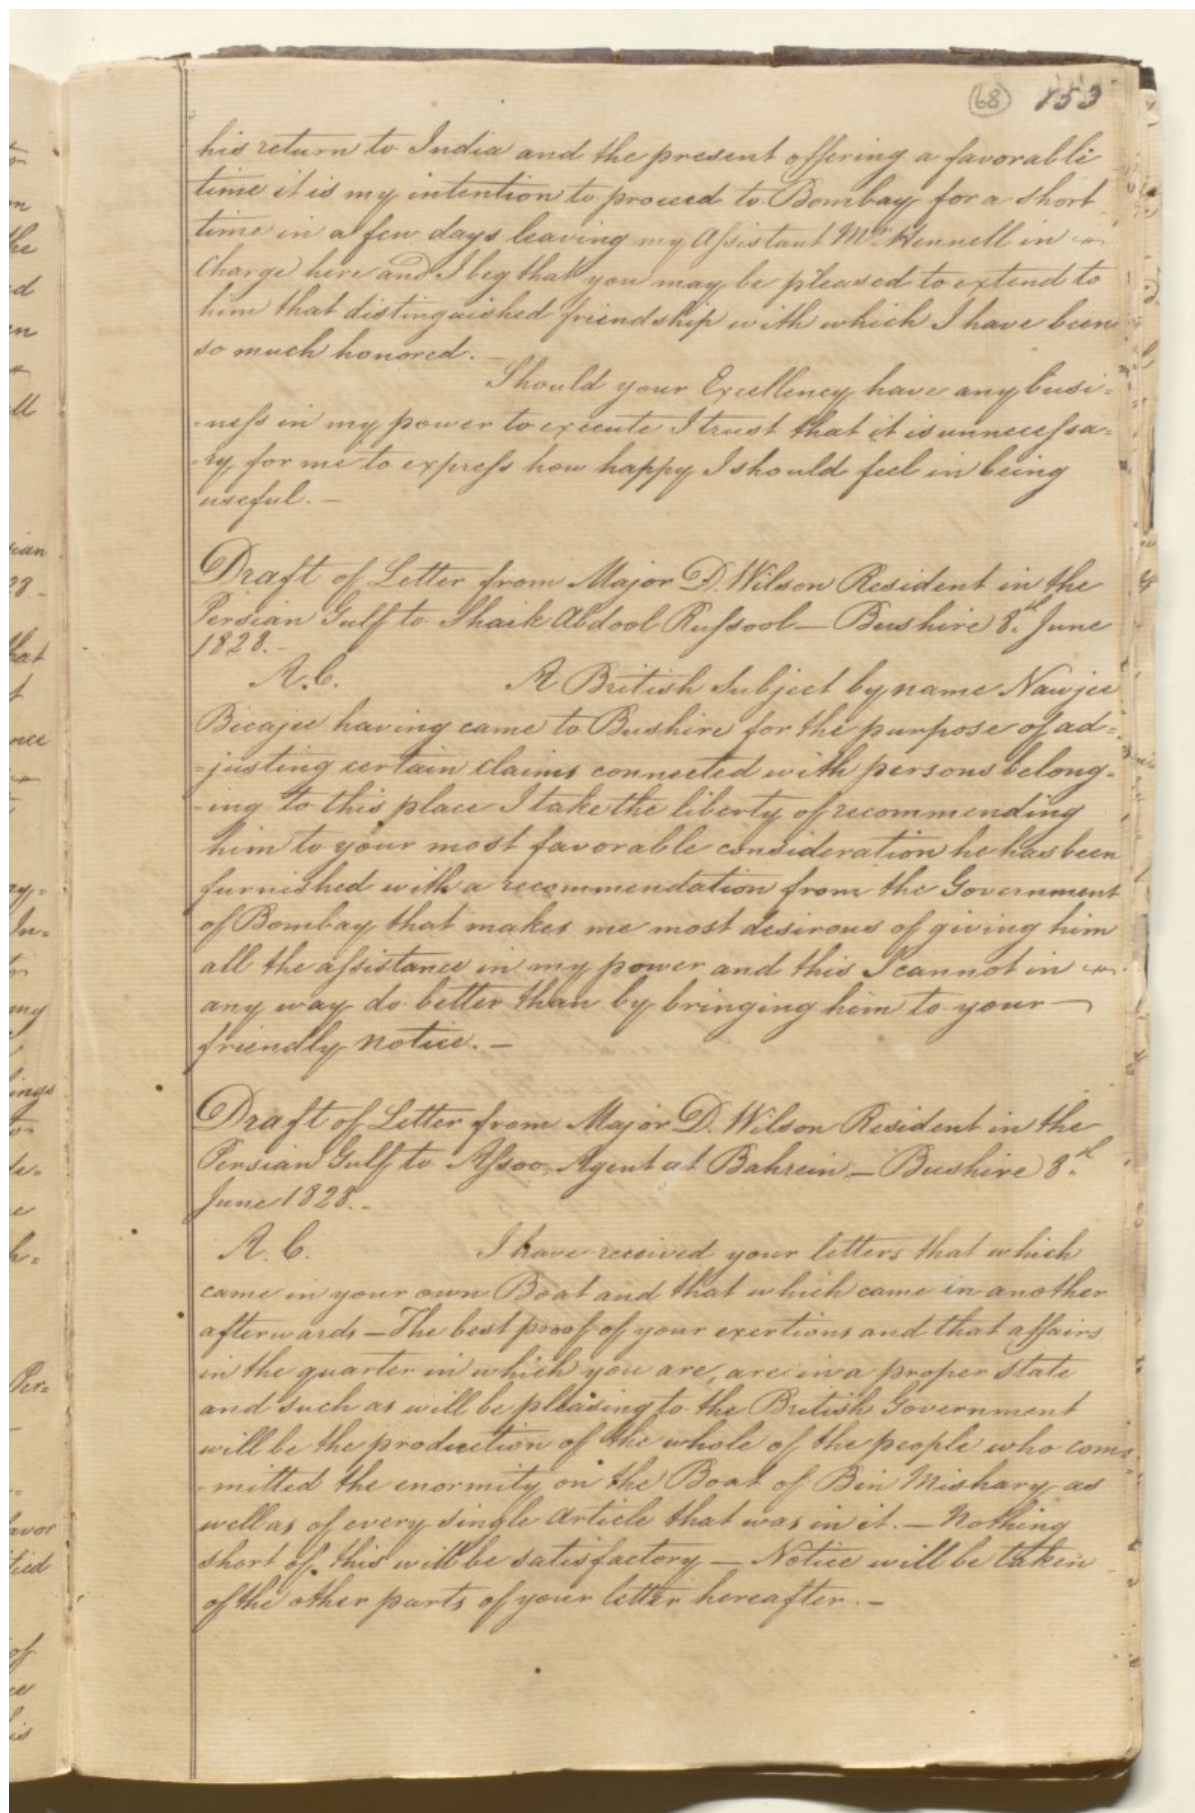 (68) 153
his return to India and the present offering a favorable
time it is my intention to proceed to Bombay for a short
time in a few days leaving my Assistant Mr. Hennell in
charge here and I beg that you may be pleased to extend to
him that distinguished friendship with which I have been
so much honored. —
Should your Excellency have any busi=
=ness in my power to execute I trust that it is unnecessa=
=ry for me to express how happy I should feel in being
useful. —
Draft of Letter from Major D. Wilson Resident in the
Persian Gulf to Shaik Abdool Russool — Bushire 8.th June
1828. -
A.C. A British Subject by name Nawjee
Bicajee having came to Bushire for the purpose of ad=
=justing certain claims connected with persons belong-
-ing to this place I take the liberty of recommending
him to your most favorable consideration he has been
furnished with a recommendation from the Government
of Bombay that makes me most desirous of giving him
all the assistance in my power and this I cannot in
any way do better than by bringing him to your —
friendly notice. —
Draft of Letter from Major D. Wilson Resident in the
Persian Gulf to Assoo, Agent at Bahrein — Bushire 8.th
June 1828. -
A.C. I have received your letters that which
came in your own Boat and that which came in another
afterwards — The best proof of your exertions and that affairs
in the quarter in which you are, are in a proper state
and such as will be pleasing to the British Government
will be the production of the whole of the people who com=
-mitted the enormity on the Boat of Bin Mishary as
well as of every single Article that was in it. — Nothing
short of this will be satisfactory — Notice will be taken
of the other parts of your letter hereafter. —